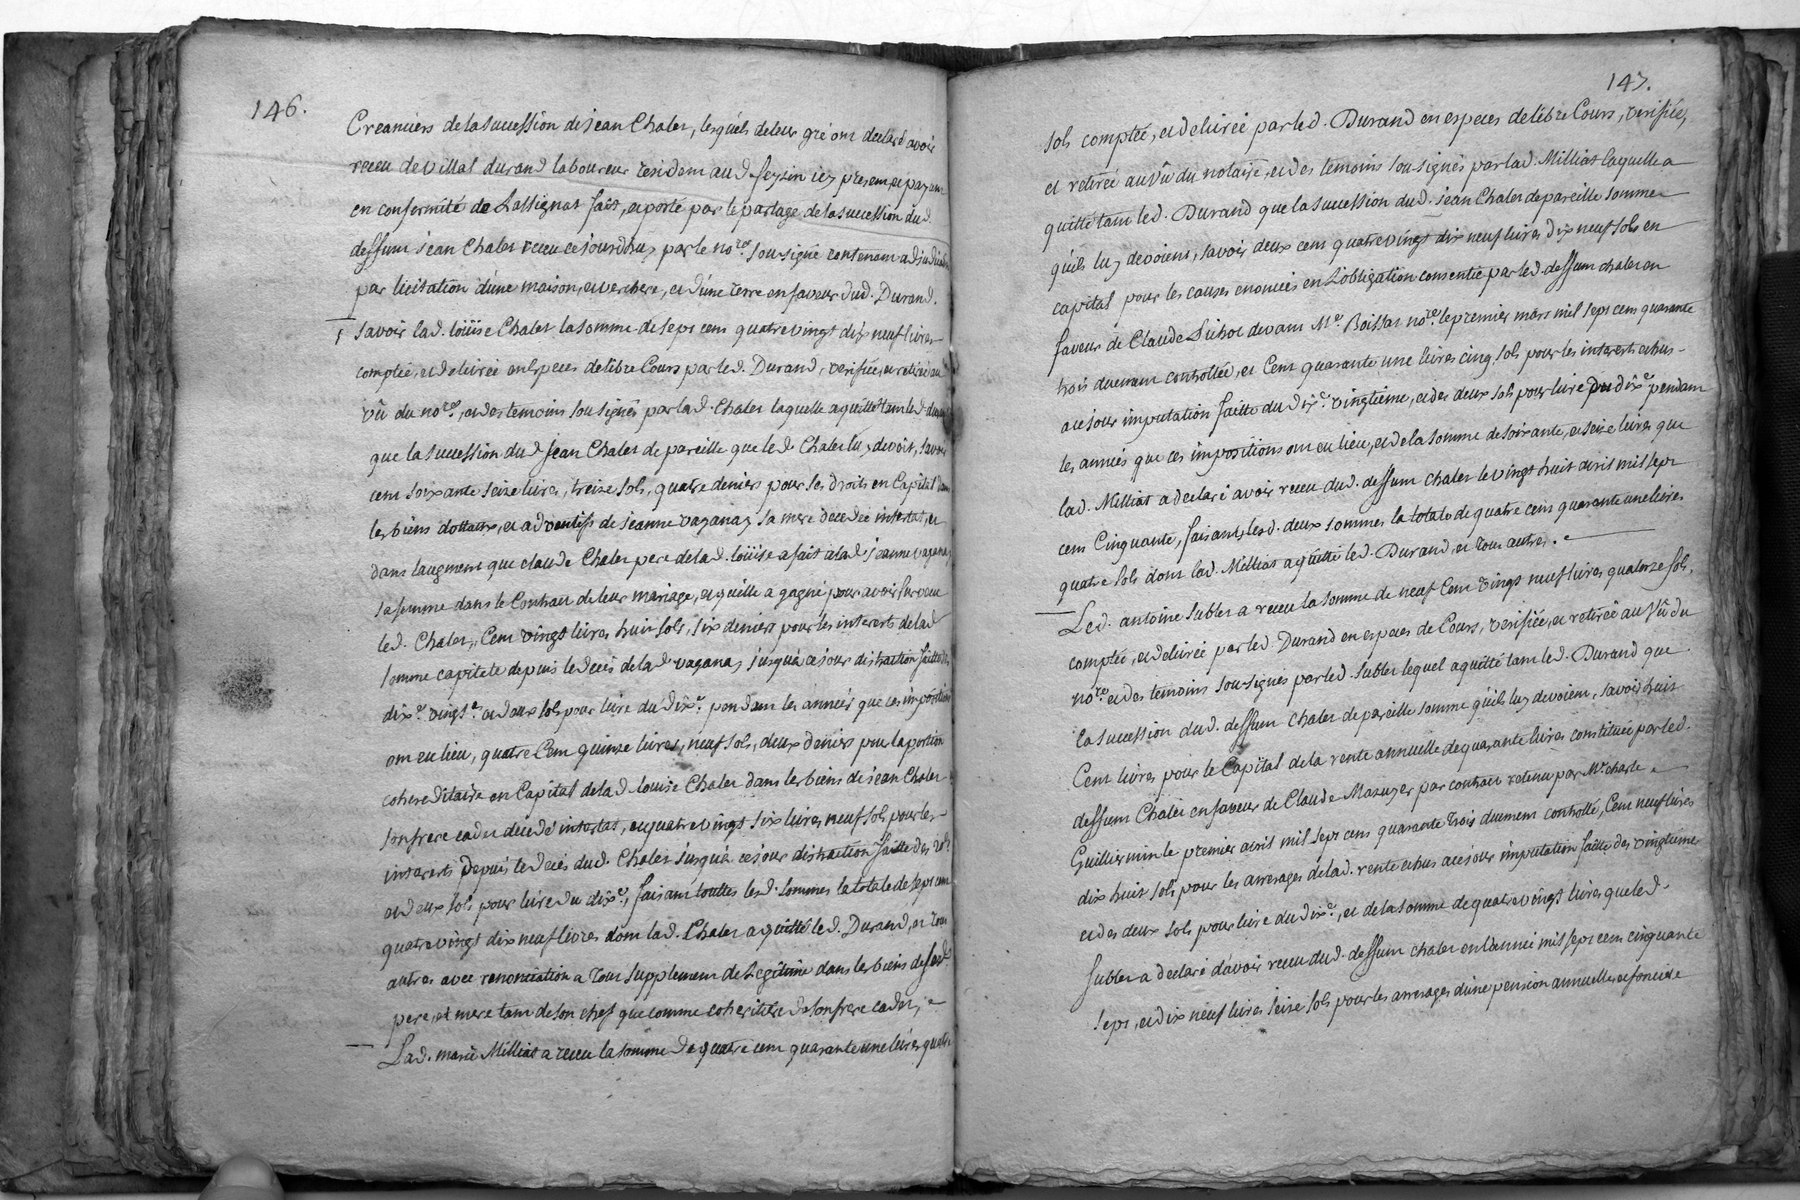 146.
Creanciers de la succession de jean Chaler, lesquels de leur gré ont declaré avoir
receu de Vital durand laboureur resident aud feyzin icy present, et payant
en conformité de Lassignat fait, et porté par le partage de la succession dud.
deffunt jean Chaler receu ce jourdhuy par le no.re sousigné contenant adjudication
par licitation d'une maison, et verchere, et d'une terre en faveur dud. Durand.
savoir lad. loüise Chaler la somme de sept cent quatre vingt dix neuf livres
comptée, et delivrée en Especes de libre Cours par led. Durand, verifiée, et retirée au
vû du no.re, et des temoins sousignés par lad. Chaler laquelle a quitté tant led. durand
que la succession dud jean Chaler de pareille que led Chaler luy devoit, savoir
cent soixante seize livres, treize sols, quatre deniers pour ses droits en Capital dans
les biens dottaux, et adventifs de jeanne vaganay sa mere decedée intestat, et
dans laugment que claude Chaler pere de lad. loüise a fait a lad. jeanne vaganay
sa femme dans le Contract de leur mariage, et quelle a gagné pour avoir survecu
led. Chaler, Cent vingt livres huit sols, six deniers pour les interets de lad
somme capitale depuis le deces de lad vaganay jusqu'a ce jour distraction faitte du
dix.e vingt.e et deux sols pour livre du dix.e pendant les années que ces impositions
ont eu lieu, quatre Cent quinze livres, neuf sols, deux deniers pour la portion
cohereditaire en Capital de lad loüise Chaler dans les biens de jean Chaler
son frere cadet decedé intestat, et quatre vingt six livres neuf sols pour les
interets Depuis le deces dud. Chaler jusqu'a ce jour distraction faitte des 20.es
et deux sols pour livre du dix.e, faisant touttes lesd. sommes la totale de sept cent
quatre vingt dix neuf livres dont lad. Chaler a quitté led. Durand, et tous
autres avec renonciation a tout supplement de Legitime dans les biens de sesd.
pere, et mere tant de son chef que comme coheritiere de son frere cadet,
Lad. marie Milliat a receu la somme de quatre cent quarante une livres quatre
147.
sols comptée, et delivrée par led. Durand en especes de libre Cours, verifiée,
et retirée au vû du notaire, et des temoins sousignés par lad. Milliat laquelle a
quitté tant led. Durand que la succession dud. jean Chaler de pareille somme
qu'ils luy devoient, savoir deux cent quatre vingt dix neuf livres dix neuf sols en
capital pour les causes enoncées en Lobligation consentie par led. deffunt chaler en
faveur de Claude devant M.e Boissat no.re le premier mars mil sept cent quarante
trois duement controllée, et Cent quarante une livres cinq sols pour les interets echus
a ce jour imputation faitte du dix.e vingtieme, et des deux sols pour livre du dix.e pendant
les années que ces impositions ont eu lieu, et de la somme de soixante, et seize livres que
lad. Milliat a declaré avoir receu dud. deffunt chaler le vingt huit avril mil sept
cent Cinquante, faisant lesd. deux sommes la totale de quatre cent quarante une livres
quatre sols dont lad. Milliat a quitté led. Durand, et tous autres.
Led. antoine Subler a receu la somme de neuf Cent vingt neuf livres quatorze sols,
comptée, et delivrée par led. Durand en especes de Cours, verifiée, et retirée au vû du
no.re et des temoins sousignés par led. Subler lequel a quitté tant led. Durand que
la succession dud. deffunt Chaler de pareille somme qu'ils luy devoient, savoir huit
Cent livres pour le Capital de la rente annuelle de quarante livres constituée par led.
deffunt Chaler en faveur de Claude Mazuyer par contract retenu par M.e charle
Guillermin le premier avril mil sept cent quarante trois duement controllé, Cent neuf livres
dix huit sols pour les arrerages de lad. rente echus a ce jour imputation faitte des vingtiemes
et des deux sols pour livre du dix.e, et de la somme de quatre vingt livres que led.
Subler a declaré d'avoir receu dud. deffunt chaler en l'année mil sept cent cinquante
sept, et dix neuf livres seize sols pour les arrerages d'une pension annuelle, et fonciere